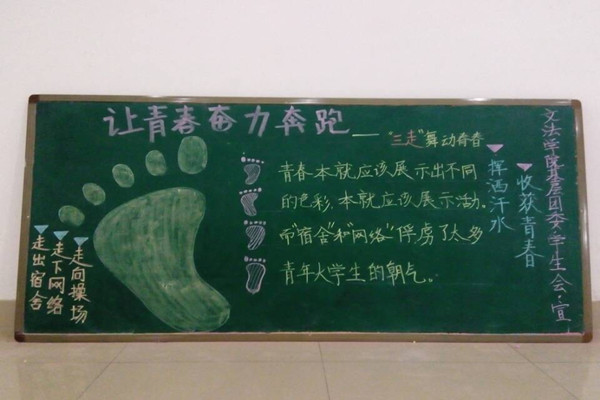 让青春奋力奔跑
——“三走”舞动青春
青春本就应该展示出不同
的色彩，本就应该展示活力。
而“宿舍”和“网络”俘虏了太多
青年大学生的朝气。
走出宿舍
走下网络
走向操场
挥洒汗水
收获青春
文法学院基层团委学生会·宣